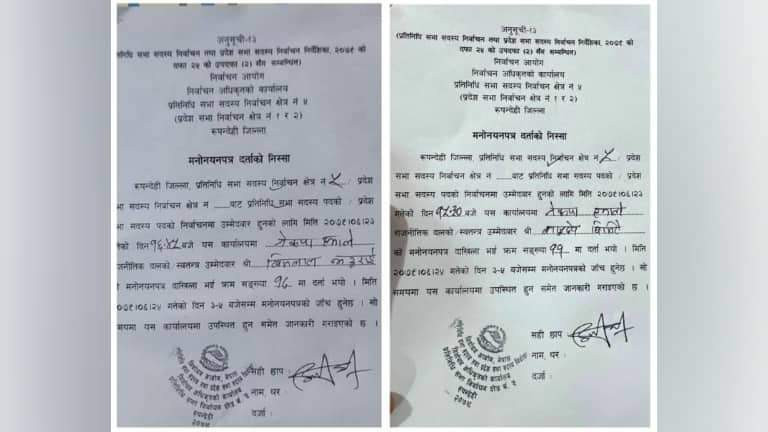 अनुसूची-१३
प्रतिनिधि सभा सदस्य निर्वाचन तथा प्रदेश सभा सदस्य निर्वाचन निर्देशिका, २०७९ को
दफा २५ को उपदफा (२) सँग सम्बन्धित)
निर्वाचन आयोग
निर्वाचन अधिकृतको कार्यालय
प्रतिनिधि सभा सदस्य निर्वाचन क्षेत्र नं ४
(प्रदेश सभा निर्वाचन क्षेत्र नं १ र २)
रूपन्देही जिल्ला
मनोनयनपत्र दर्ताको निस्सा
रूपन्देही जिल्ला, प्रतिनिधि सभा सदस्य निर्वाचन क्षेत्र नं ४ / प्रदेश
भा सदस्य निर्वाचन क्षेत्र नं ___ बाट प्रतिनिधि सभा सदस्य पदको / प्रदेश
भा सदस्य पदको निर्वाचनमा उम्मेदवार हुनको लागि मिति २०७९।०६।२३
तेको दिन १६:४२ बजे यस कार्यालयमा नेकपा एमाले
जनीतिक दलको स्वतन्त्र उम्मेदवार श्री
मनोनयनपत्र दाखिला भई क्रम सङ्ख्या १६ मा दर्ता भयो । मिति
२०७९।०६।२४ गतेको दिन ३-५ बजेसम्म मनोनयनपत्रको जाँच हुनेछ । सो
समयमा यस कार्यालयमा उपस्थित हुन समेत जानकारी गराइएको छ ।
सही छाप
नाम, थर :
दर्जा :
अनुसूची-१३
(प्रतिनिधि सभा सदस्य निर्वाचन तथा प्रदेश सभा सदस्य निर्वाचन निर्देशिका, २०७९ को
दफा २५ को उपदफा (२) सँग सम्बन्धित)
निर्वाचन आयोग
निर्वाचन अधिकृतको कार्यालय
प्रतिनिधि सभा सदस्य निर्वाचन क्षेत्र नं ४
(प्रदेश सभा निर्वाचन क्षेत्र नं १ र २)
रूपन्देही जिल्ला
मनोनयनपत्र दर्ताको निस्सा
रूपन्देही जिल्ला, प्रतिनिधि सभा सदस्य निर्वाचन क्षेत्र नं ४ / प्रदेश
सभा सदस्य निर्वाचन क्षेत्र नं ___ बाट प्रतिनिधि सभा सदस्य पदको / प्रदेश
सभा सदस्य पदको निर्वाचनमा उम्मेदवार हुनको लागि मिति २०७९।०६।२३
गतेको दिन बजे यस कार्यालयमा नेकपा एमाले
राजनीतिक दलको स्वतन्त्र उम्मेदवार श्री
को मनोनयनपत्र दाखिला भई क्रम सङ्ख्या ११ मा दर्ता भयो । मिति
२०७९।०६।२४ गतेको दिन ३-५ बजेसम्म मनोनयनपत्रको जाँच हुनेछ । सो
समयमा यस कार्यालयमा उपस्थित हुन समेत जानकारी गराइएको छ ।
सही छाप
नाम, थर :
दर्जा :